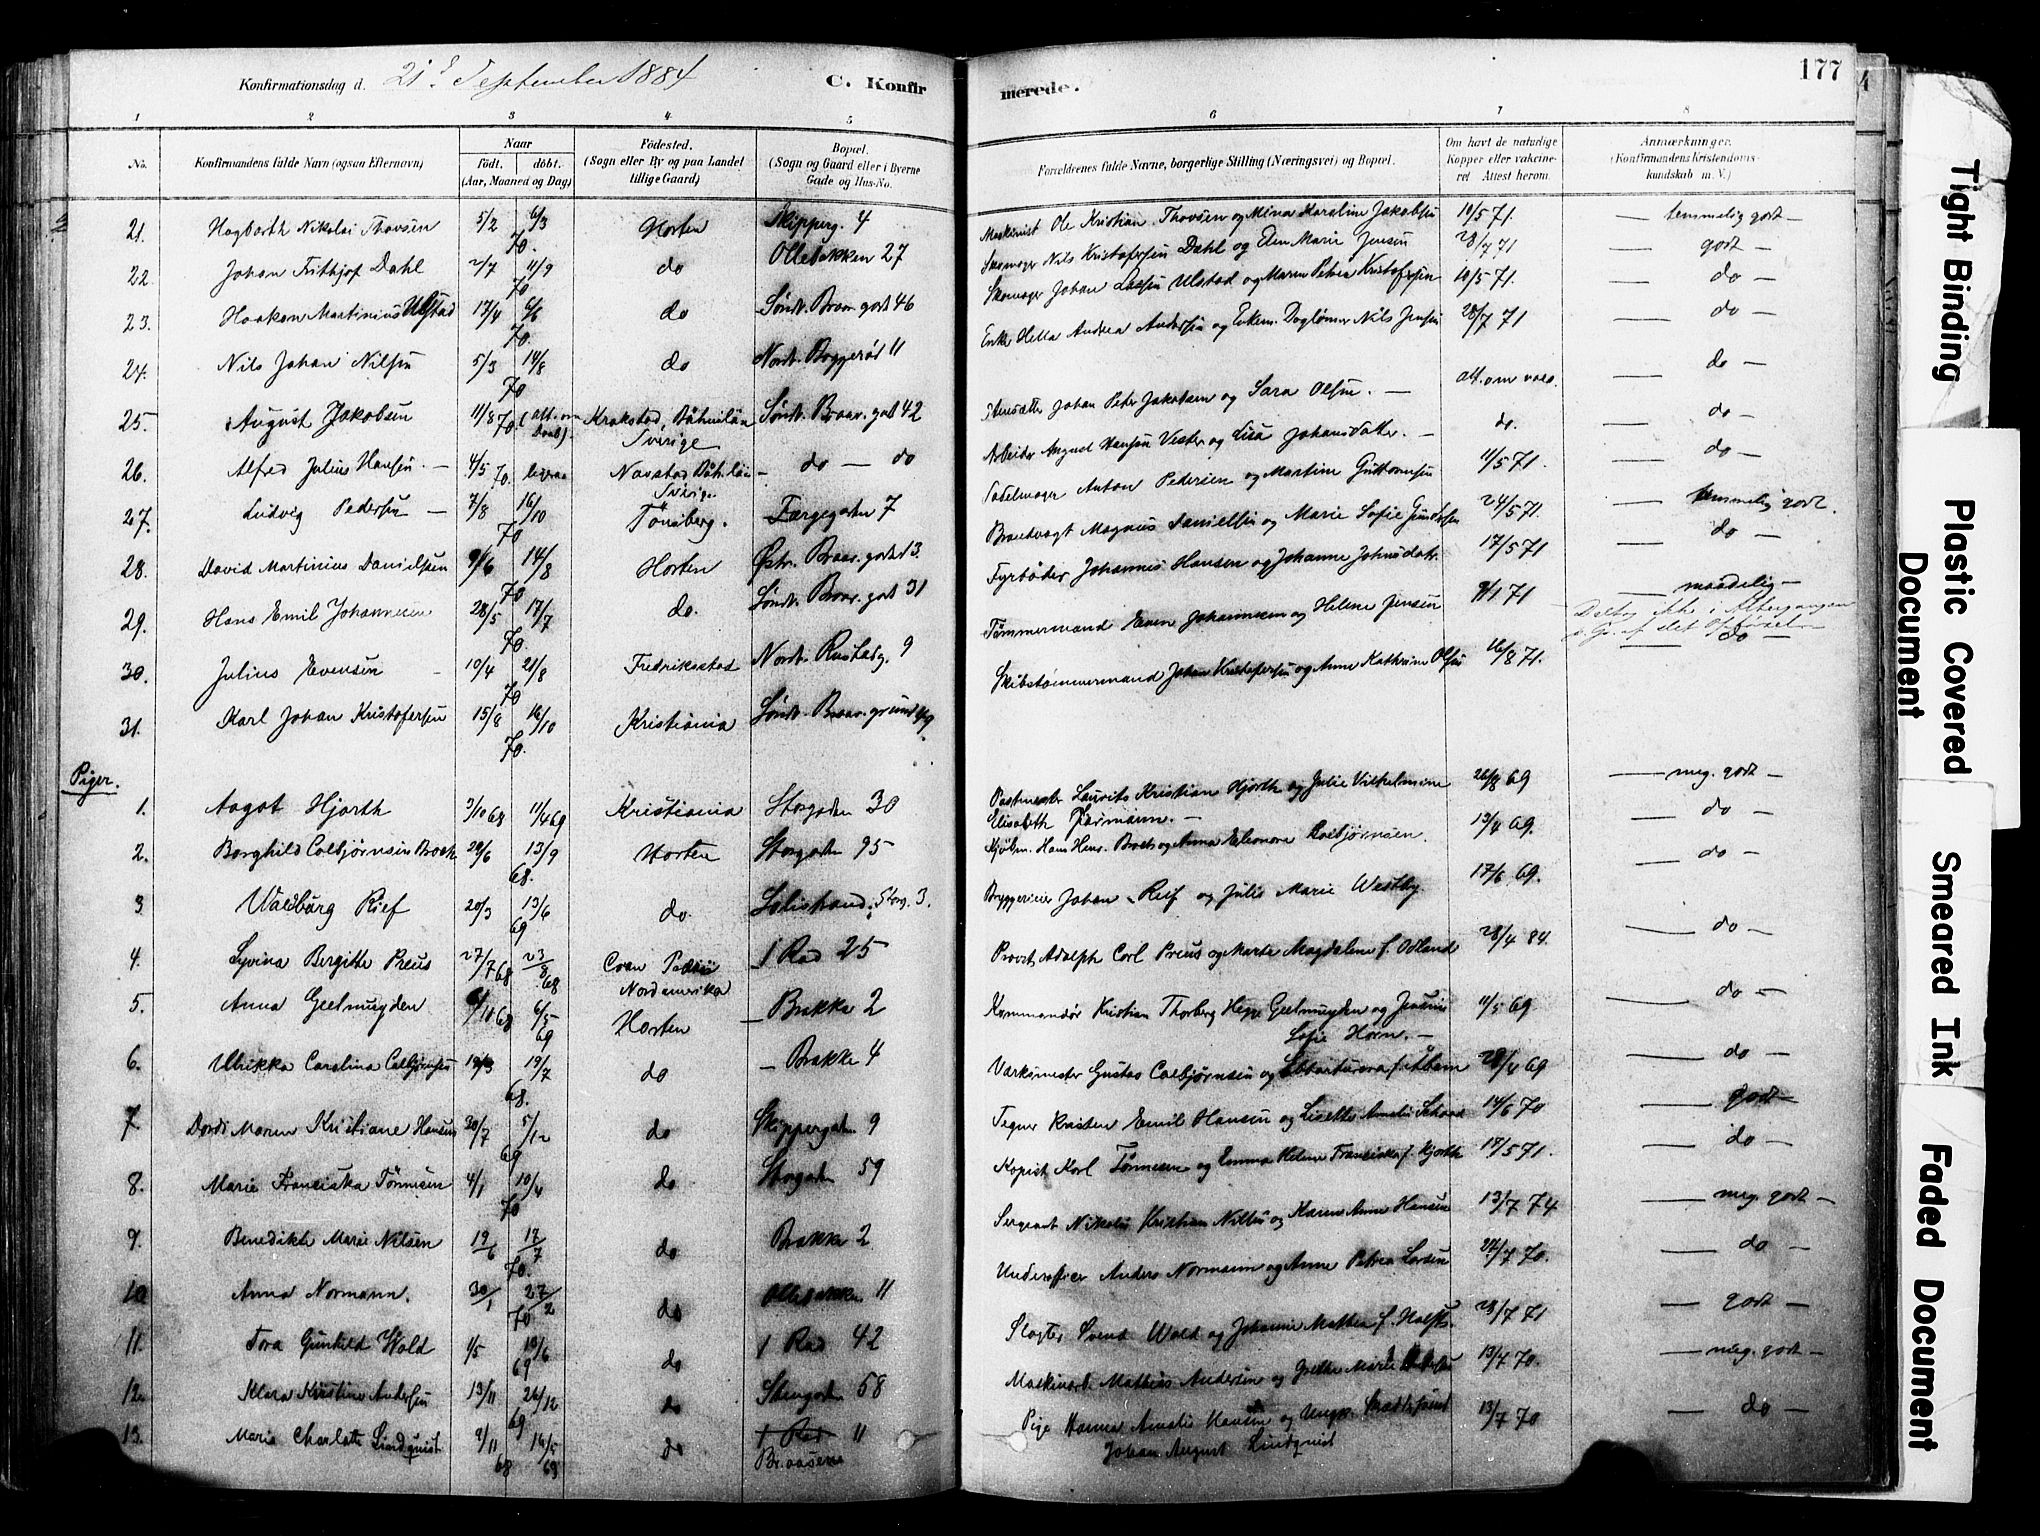 Konfirmationsdag d. 21de September 1884
C. Konfir
merede.
177
1 2 3 4 5 6 7 8
No.
Konfirmandens fulde Navn (ogsaa Efternavn)
Naar
født. døbt.
(Aar, Maaned og Dag)
Fødested.
(Sogn eller By og paa Landet
tillige Gaard)
Bopæl.
(Sogn og Gaard eller i Byerne
Gade og Hus-No.
Forældrenes fulde Navne, borgerlige Stilling (Næringsvei) og Bopæl.
Om havt de naturlige
Kopper eller vakcine-
ret Attest herom.
Anmærkninger.
(Konfirmandens Kristendoms-
kundskab m. V.)
21. Hagbarth Nikolai Thovsen 5/2 6/3 70. Horten Skipperg. 4 Maskinist Ole Kristian Thovsen og Mina Karoline Jakobsen 10/5 71. — temmelig godt —
22. Johan Frithjof Dahl 2/7 11/9 70 do Ollebakken 27 Skomager Nils Kristofersen Dahl og Elen Marie Jensen 28/7 71 — godt —
23. Haakon Martinius Ulstad 17/4 6/6 70. do Søndr. Braar. gade 46 Skomager Johan Larsen Ulstad og Maren Petrea Kristofersen 10/5 71. — do —
24. Nils Johan Nilsen 5/3 14/8 70 do Nordr. Byggerød 11 Enke Helle Andrea Andersen og Enkem. Dagløner Nils Jensen 28/7 71 — do —
25. August Jakobsen 11/8 70. (att. om Daab) Krokstad, Båhuslän Sverige Søndr. Braar. gade 42 Johan Peter Jakobsen og Sara Olsen. — att. om vacc. — do —
26. Alfred Julius Hansen. — 4/5 70. Navstad Båhuslän Sverige — do — do Arbeider August Hansen Vester og Lisa Johansdatter. — do. — do —
27. Ludvig Pedersen — 7/8 16/10 70 Tönsberg. Færgegaden 7 Sadelmager Anton Pedersen og Martine Guttormsen 11/5 71. — do —
28. David Martinius Danielsen 9/6 14/8 70 Horten Østr. Braar. gade 13. Brandvagt Magnus Danielsen og Marie Sofie Gundersen 24/5 71. — temmelig godt.
29. Hans Emil Johannesen 28/5 17/7 70. do. Søndr. Braar. gade 31 Fyrbøder Johannes Hansen og Johanne Johnsdatr. 17/5 71 — do —
30. Julius Evensen 10/4 21/8 70 Fredriksstad Nordr. Rustadg. 9 Tømmermand Even Johannesen og Helene Jensen 9/1 71 — maadelig —
Deltog ikke i Altergangen
31. Karl Johan Kristofersen 15/8 16/10 70. Kristiania Søndr. Braar. grund Skibstømmermand Johan Kristofersen og Anne Kathrine Olsen 16/8 71. — do —
Piger.
1. Aagot Hjorth 3/10 68 11/4 69 Kristiania Storgaden 30 Postmester Laurits Kristian Hjorth og Julie Vilhelmine Elisabeth Farmann. — 26/8 69 — meg. godt —
2. Borghild Colbjørnsen Broch 28/6 13/9 68. Horten Storgaden 95 Kjøbm. Hans Henr. Broch og Anna Eleonora Colbjørnsen. 13/4 69. — do —
3. Walburg Rief 20/3 13/6 69 do. Solistrand, Storg. 3. Byggeriier Johan Rief og Julie Marie Westby 17/6 69. — do —
4. Lyvina Bergitte Preus 27/7 68 23/8 68 Nordamerika 1 Rad 25 Provst Adolph Carl Preus og Marte Magdalene f. Odland 28/4 84. — do —
5. Anna Geelmuyden 6/10 68 6/5 69 Horten — Brakke 2 Kommandør Kristian Thorberg Hegge Geelmuyden og Jensine Sofie Horn. — 11/5 69 — do —
6. Ulrikka Carolina Colbjørnsen 19/3 19/7 68. do — Brakke 4 Værksmester Gustav Colbjørnsen og 28/4 69 — do —
7. Dordi Maren Kristiane Hansen 30/7 5/12 69 do Skippergaden 9 Tegner Kristen Emil Hansen og Lisette Amalie Schaad 14/6 70 — godt —
8. Marie Franciska Tönnesen 4/1 10/4 70 do Storgaden 59 Kopist Karl Tönnesen og Emma Helene Franciska f. Hjorth 17/5 71. — do —
9. Benedikte Marie Nilsen 19/6 17/7 70. do Brakke 2 Sergeant Nikolai Kristian Nilsen og Karen Anne Hansen 13/7 74 — meg. godt —
10 Anna Normann. 30/1 27/2 70 do Ollebakken 11 Underofficer Anders Normann og Anne Petrea Larsen 27/7 70. — do —
11. Tora Gunhild Wold 1/5 19/6 69 do 1 Rad 42 Slagter Svend Wold og Johanne Mathea f. Holst. 28/7 71 — godt —
12. Klara Kristine Andersen 13/11 26/12 69 do Stengaden 58 Maskinarb. Mathias Andersen og Grethe Marie Andersen 13/7 70. — meg. godt —
13. Maria Charlotte Lindquist 9/11 68 16/5 69 do 1 Rad 11 Braasene Pige Hanna Amalie Hansen og Ungk. Johan August Lindquist 13/7 70 — do —
Tight Binding
Plastic Covered
Document
Smeared Ink
Faded Document